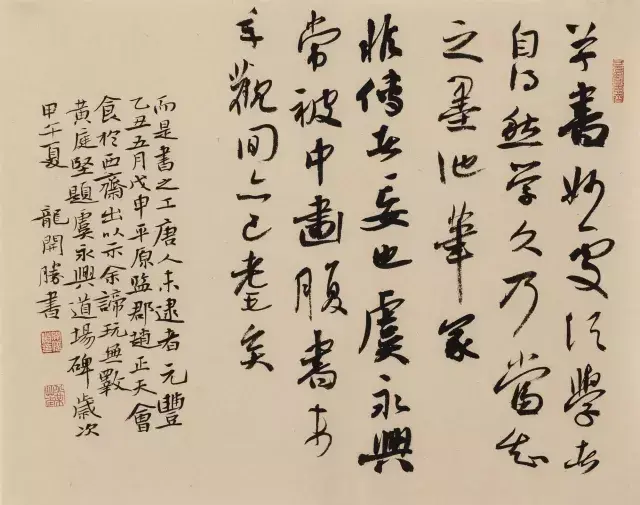 草書妙處須學者
自得然學久乃當知
之墨池筆冢
非傳者妄也虞永興
常被中畫腹書末
年觀間亦已耄矣
而是書之工唐人未逮者元豐
乙丑五月戊申平原監郡趙正夫會
食於西齋出以示余諦玩無數
黃庭堅題虞永興道場碑歲次
甲午夏 龍開勝書